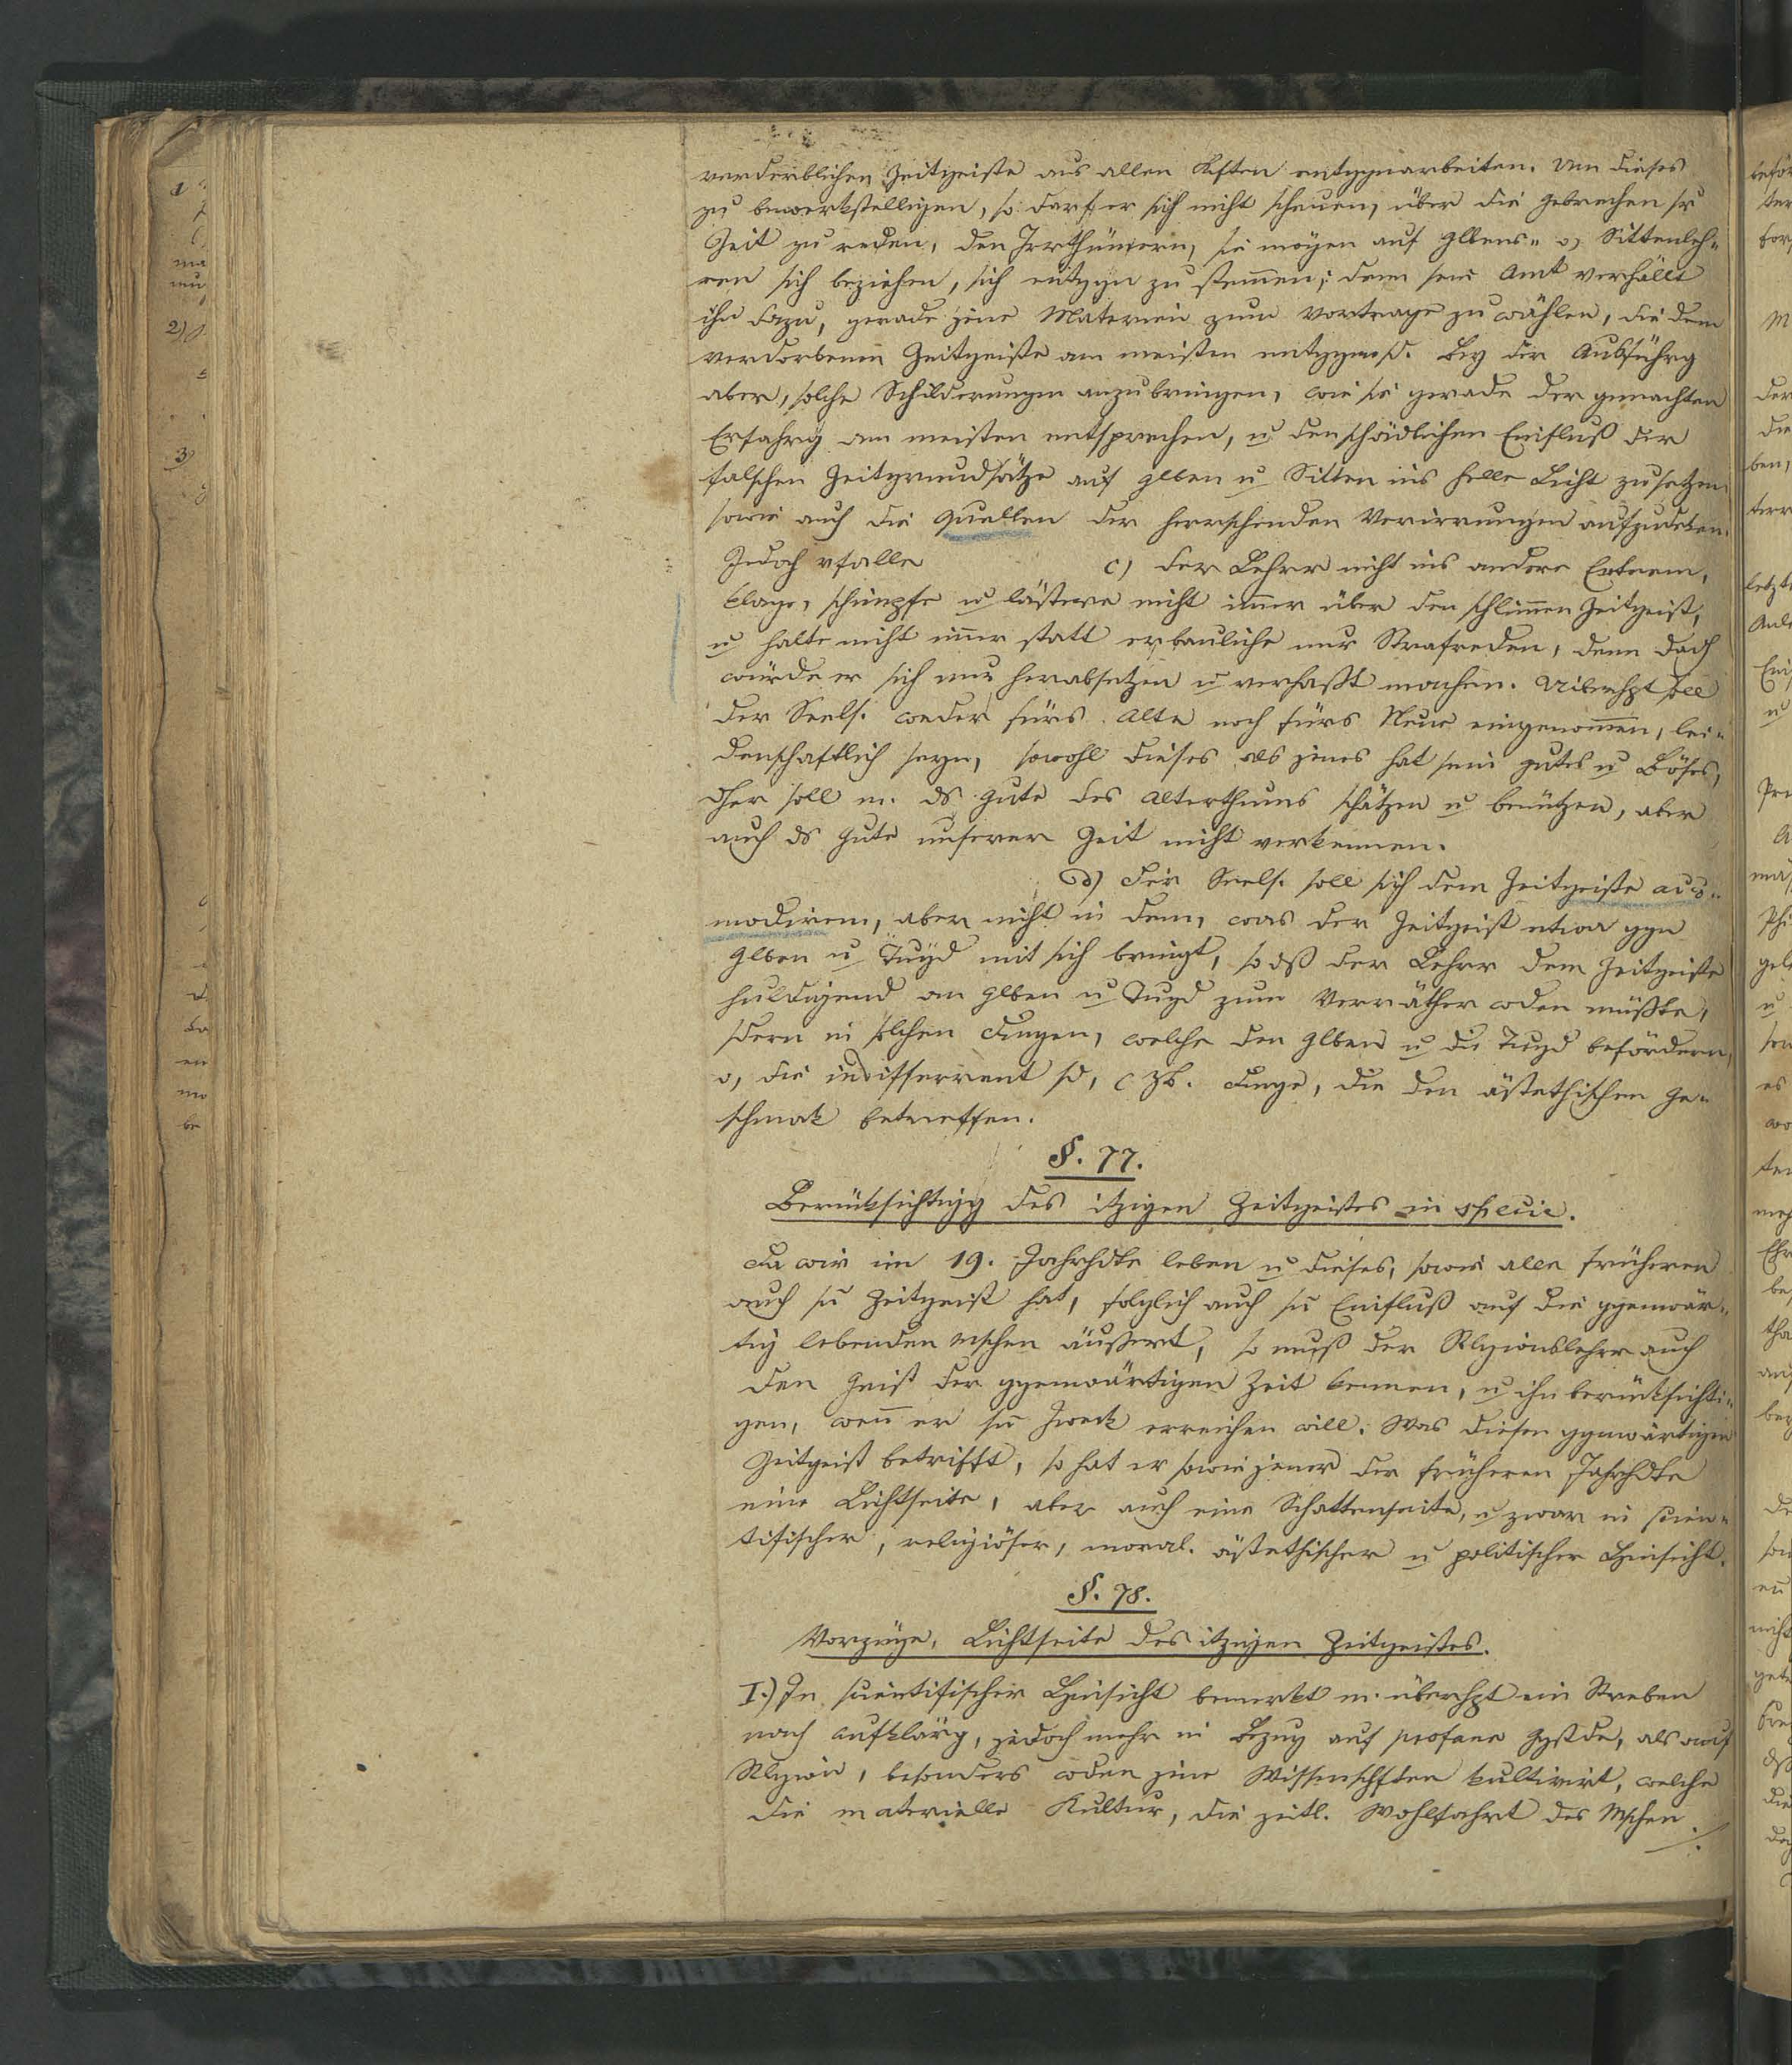 verderblichen Zeitgeiste aus allen Kften entggnarbeiten. Um dieses
zu bewerkstelligen, so darf er sich nicht scheuen, über die Gebrechen sr
Zeit zu reden, den Irrthümern, sie mögen auf Glbens- o, Sittenleh-
ren sich beziehen, sich entggn zu stemen; denn sein Amt verhällt
ihn dazu, gerade jene Materien zum Vortrage zu wählen, die dem
verdorbenen Zeitgeiste am meisten entggensd. Bey der Ausführg
aber, solche Schilderungen anzubringen, wie sie gerade der gemachten
Erfahrg am meisten entsprechen, u den schädlichen Einfluß der
falschen Zeitgrundsätze auf Glben u Sitten ins helle Licht zu setzen
sowie auch die Quellen der herrschenden Verirrungen aufzudeken.
Jedoch vfalle c) der Lehrer nicht ins andere Extrem,
klage, schimpfe u lästere nicht imer über den schlimen Zeitgeist,
u halte nicht imer statt erbauliche nur Strafreden, denn dadch
würde er sich nur herabsetzen u verhaßt machen. Überhpt soll
der Seels. weder fürs Alte noch fürs Neue eingenomen, lei-
denschaftlich seyn, sowohl dieses als jenes hat sein gutes u Böses,
dher soll m. ds Gute des Alterthums schätzen u benützen, aber
auch ds Gute unserer Zeit nicht verkennen.
d) Der Seels. soll sich dem Zeitgeiste acco-
modiren, aber nicht in dem, was der Zeitgeist etwa ggn
Glben u Tugd mit sich bringt, so dß der Lehrer dem Zeitgeiste
huldigend an Glben u Tugd zum Verräther wden müßte,
sdern in solchen Dingen, welche den Glben u die Tugd befördern,
o, die indifferent sd, c zb. Dinge, die den ästethischen Ge-
schmak betreffen.
§. 77.
Berüksichtigg des itzigen Zeitgeistes in specie.
Da wir im 19. Jahrhdte leben u dieses, sowie alle früheren
auch sn Zeitgeist hat, folglich auch sn Einfluß auf die ggenwär-
tig lebenden Mschen äußert, so muß der Rlgionslehrer auch
den Geist der ggenwärtigen Zeit kennen, u ihn berücksichti-
gen, wenn er sn Zweck erreichen will. Was diesen ggnwärtigen
Zeitgeist betrifft, so hat er sowie jener der früheren Jahrhdte
eine Lichtseite, aber auch eine Schattenseite, u zwar in scien-
tifischer, religiöser, moral. ästethischer u politischer Hinsicht.
§. 78.
Vorzüge, Lichtseite des itzigen Zeitgeistes.
I.) In scientifischer Hinsicht bemerkt m. überhpt ein Streben
nach Aufklärg, jedoch mehr in Bzug auf profane Ggstde, als auf
Rlgion, besonders wden jene Wissenschften kultivirt, welche
die materielle Kultur, die zeitl. Wohlfahrt des Mschen ./.